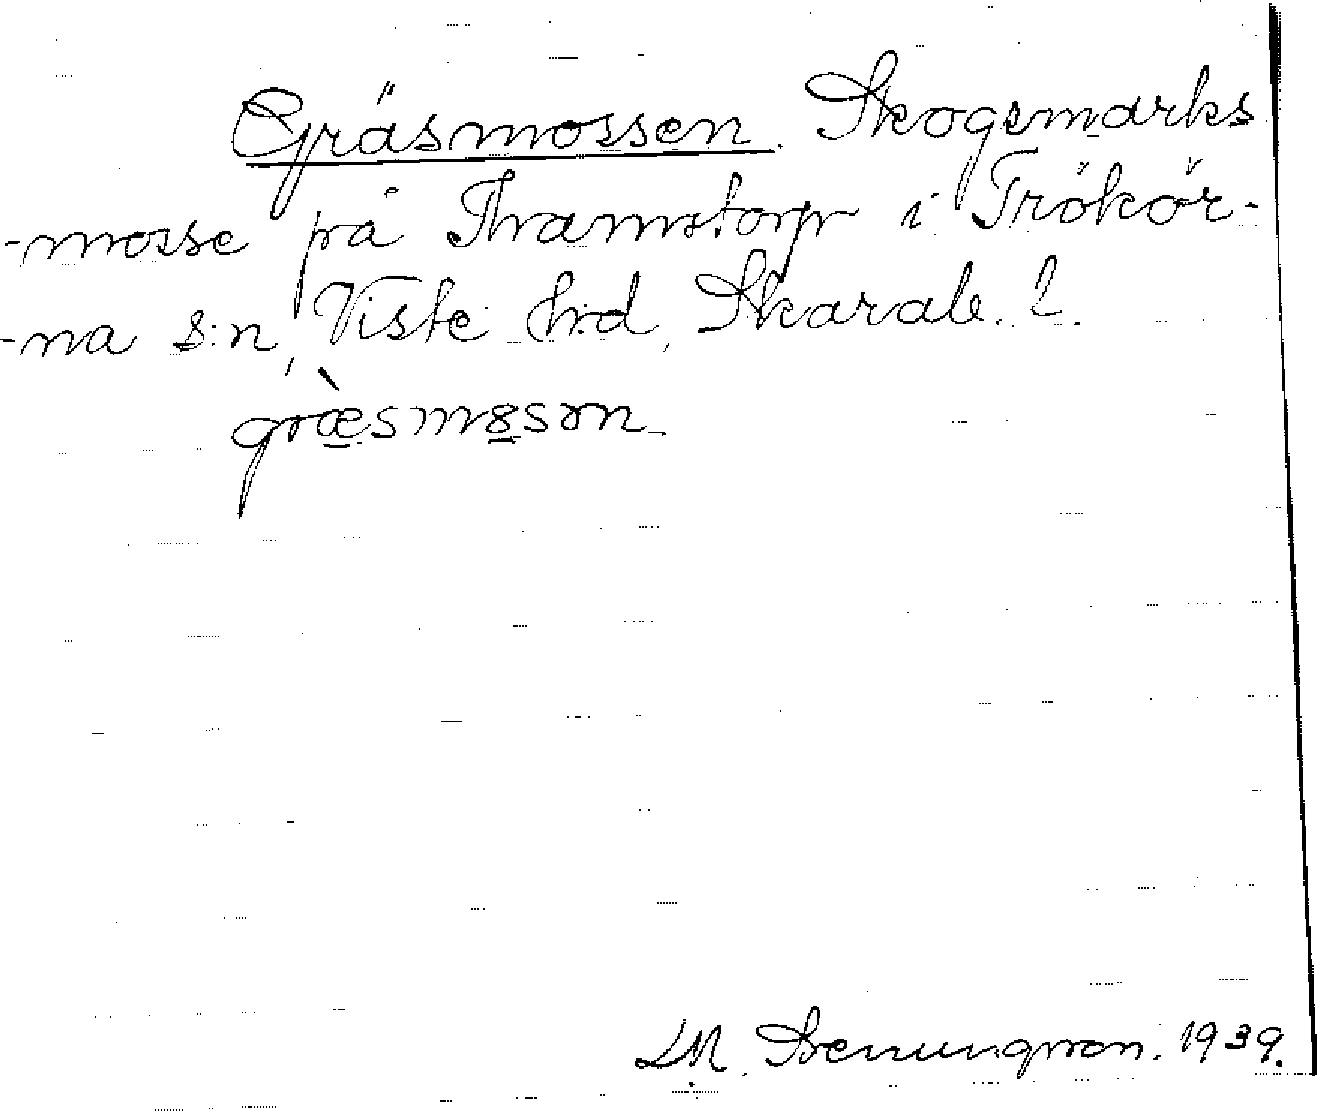 Gräsmossen. Skogsmarks
-mosse på Thamstorp i Trökör-
-na s:n, Viste h:d, Skarab. l.
græsmɷsən
1939.